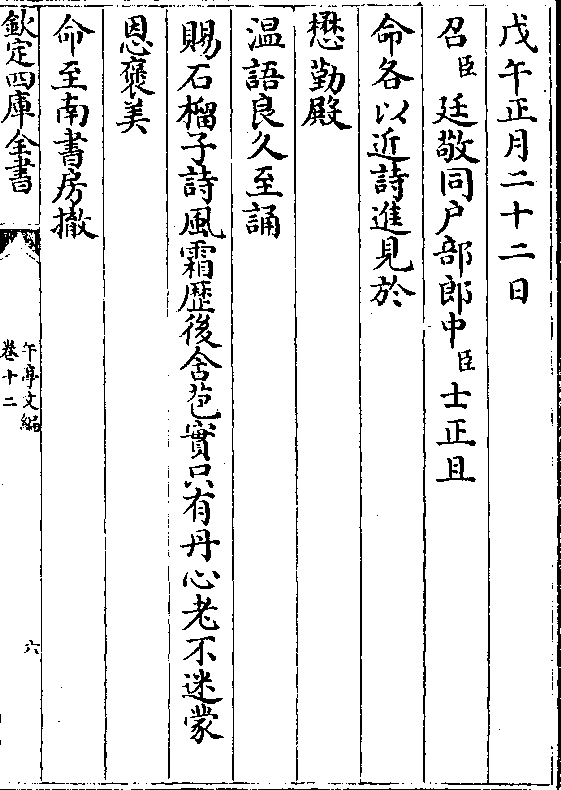 戊午正月二十二日
召臣廷敬同户部郎中臣士正且
命各以近詩進見於
懋勤殿
温語良久至誦
賜石榴子詩風霜歴後含苞實只有丹心老不迷蒙
恩褒美
命至南書房撤
欽定四庫全書
午亭文編
卷十二
六